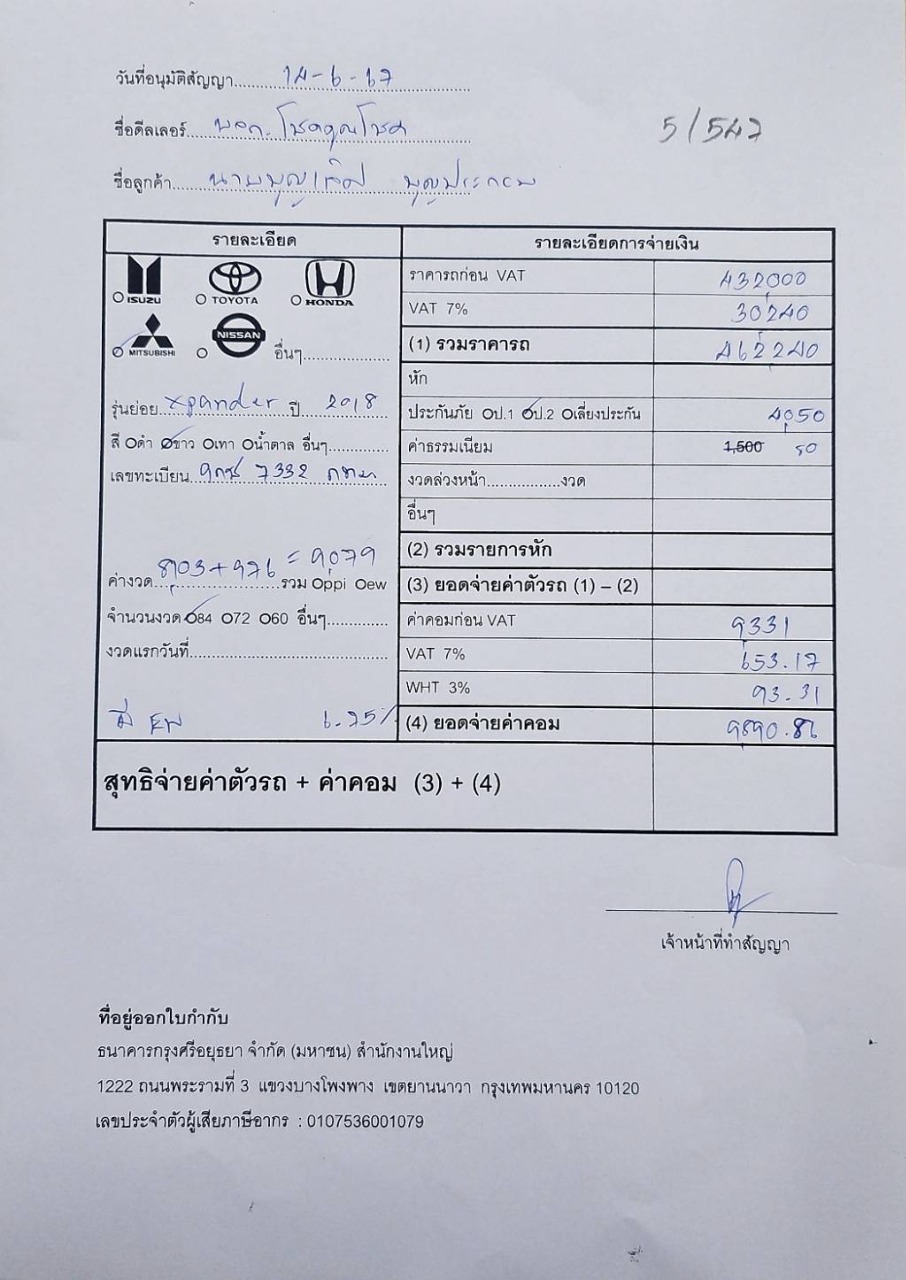 วันที่อนุมัติสัญญา 14-6-67
ชื่อดีลเลอร์ บจก. โชคคูณโชค
5/547
ชื่อลูกค้า นายบุญเกิด
รายละเอียด
รายละเอียดการจ่ายเงิน
ISUZU TOYOTA HONDA
MITSUBISHI NISSAN อื่นๆ
รุ่นย่อย Xpander ปี 2018
สี ดำ ขาว เทา น้ำตาล อื่นๆ
เลขทะเบียน 7332 กทม
8,103 + 976 = 9,079
ค่างวด รวม ppi ew
จำนวนงวด 84 72 60 อื่นๆ
งวดแรกวันที่
มี EW 6.75%
ราคารถก่อน VAT 432,000
VAT 7% 30,240
(1) รวมราคารถ 462,240
หัก
ประกันภัย ป.1 ป.2 เลี่ยงประกัน 4,050
ค่าธรรมเนียม 1,500 50
งวดล่วงหน้า งวด
อื่นๆ
(2) รวมรายการหัก
(3) ยอดจ่ายค่าตัวรถ (1) – (2)
ค่าคอมก่อน VAT 9,331
VAT 7% 653.17
WHT 3% 93.31
(4) ยอดจ่ายค่าคอม 9,890.86
สุทธิจ่ายค่าตัวรถ + ค่าคอม (3) + (4)
เจ้าหน้าที่ทำสัญญา
ที่อยู่ออกใบกำกับ
ธนาคารกรุงศรีอยุธยา จำกัด (มหาชน) สำนักงานใหญ่
1222 ถนนพระรามที่ 3 แขวงบางโพงพาง เขตยานนาวา กรุงเทพมหานคร 10120
เลขประจำตัวผู้เสียภาษีอากร : 0107536001079